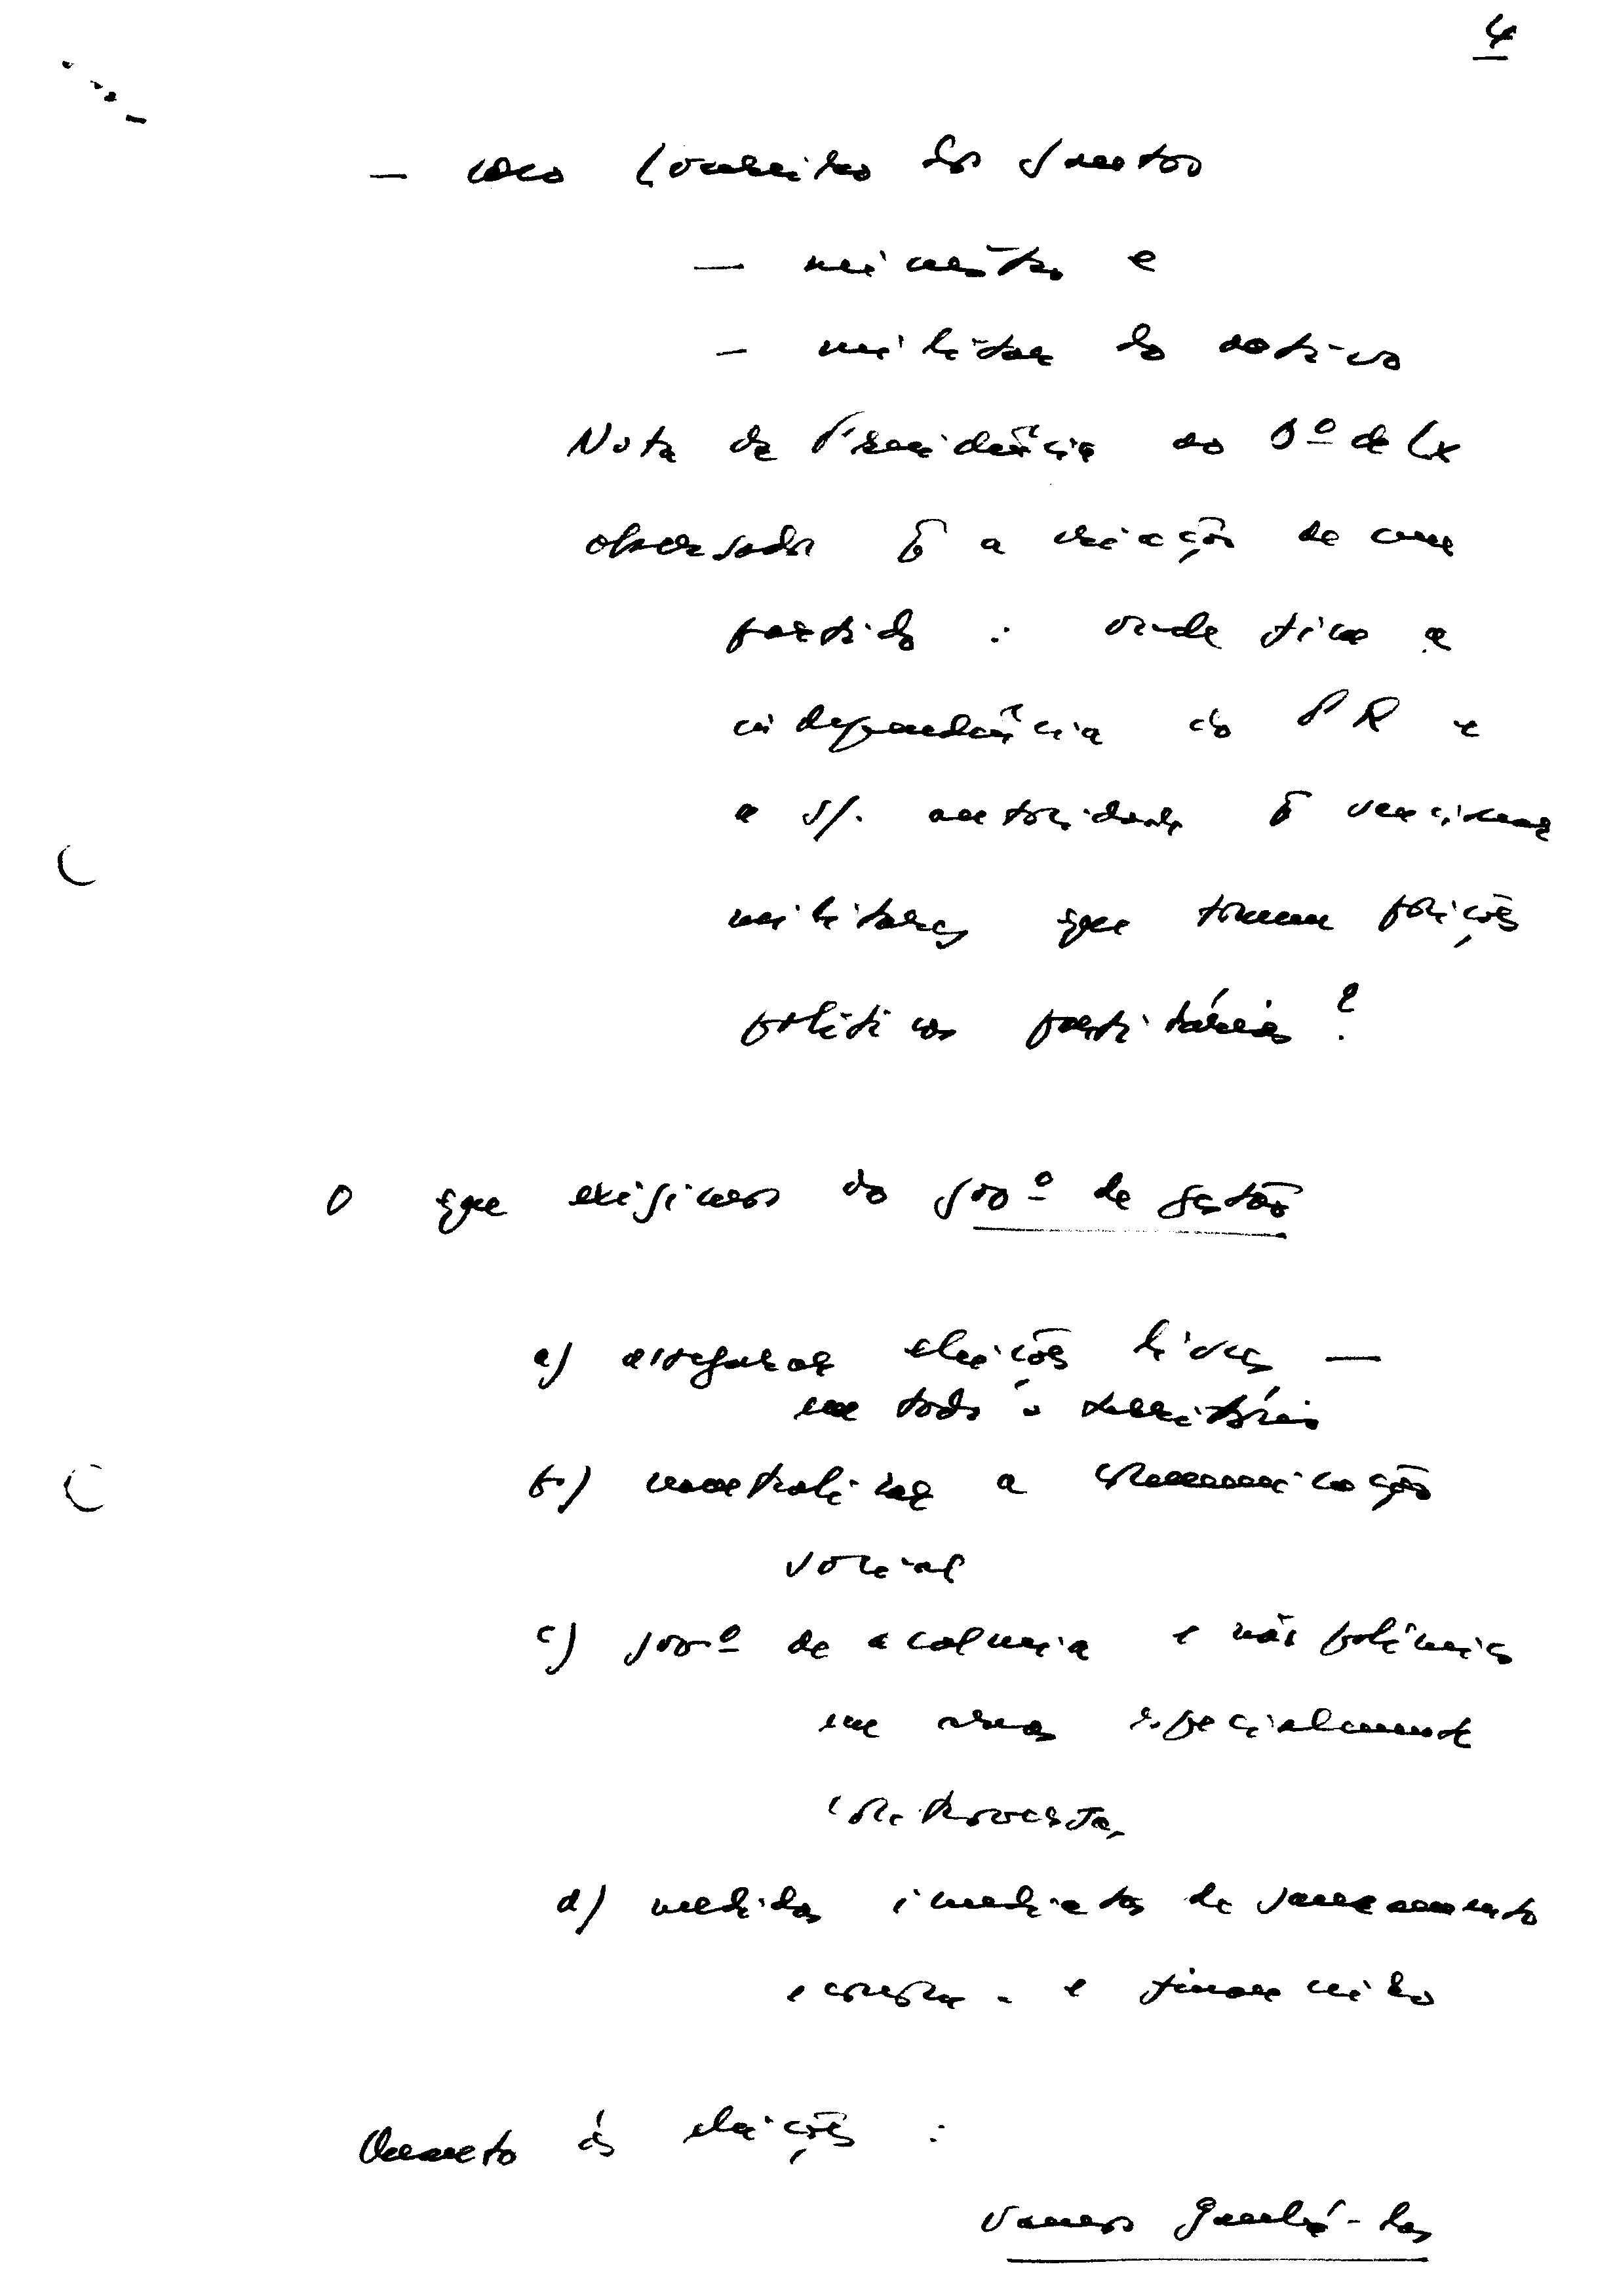 4
— caso Loureiro dos Santos
— ministro e
— militar do activo
Nota da Presidência ao B.º de Lx
observada p.ª a criação de um
partido : onde fica a
independência do PR e
a s/. autoridade p.ª sancionar
militares que tomam posições
políticas partidárias ?
O que exigimos do gov.º de gestão
a) assegurar eleições livres —
em todo o território
b) neutralizar a comunicação
social
c) gov.º de acalmia e não polémica
em áreas especialmente
controversas
d) medidas imediatas de saneamento
econom. e financeiro
Quanto às eleições :
vamos ganhá-las